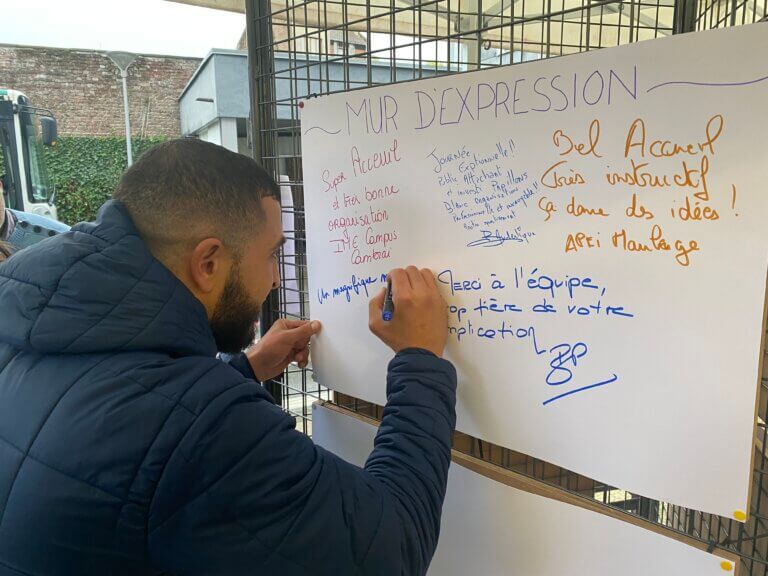 MUR D'EXPRESSION
Super Acceuil
et très bonne
organisation
IME Campus
Cambrai
Journée
Exptionnelle!!
Public Attachant
et investi
organisation
Bel Accueil
Très instructif
ça donne des idées !
APEI Maubeuge
Un magnifique
Merci à l'équipe,
trop fière de votre
implication